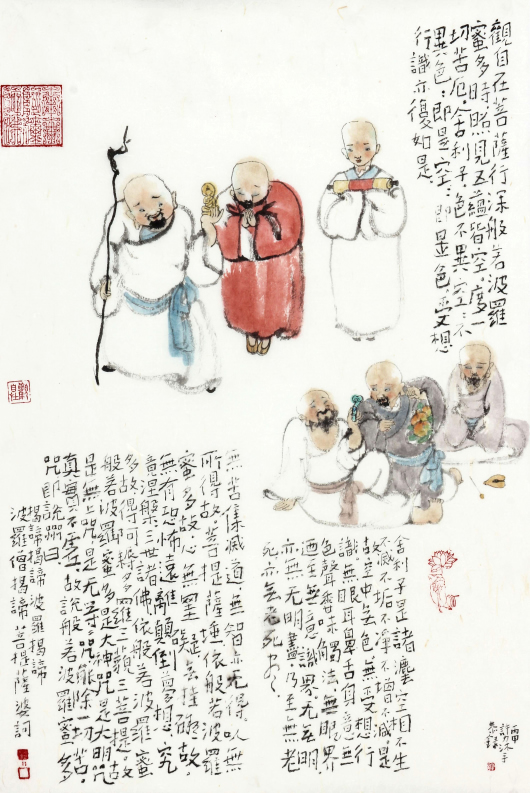 觀自在菩薩行深般若波羅
蜜多時照見五蘊皆空度一
切苦厄舍利子色不異空〻不
異色〻即是空〻即是色受想
行識亦復如是
舍利子是諸灋空相不生
不滅不垢不淨不增不減是
故空中無色無受想行
識無眼耳鼻舌身意無
色聲香味觸法無眼界
迺至無意識界無無明
亦無無明盡乃至無老
死亦無老死盡
無苦集滅道無智亦无得以無
所得故菩提薩埵依般若波羅
蜜多故心無罣礙無罣礙故
無有恐怖遠離顛倒夢想究
竟涅槃三世諸佛依般若波羅蜜
多故得阿耨多羅三藐三菩提故
般若波羅蜜多是大神咒是大明咒
是無上咒是无等〻咒能除一切苦
真實不虛故說般若波羅蜜多
咒即說咒曰
揭諦揭諦波羅揭諦
波羅僧揭諦菩提薩婆訶
丙申
沐手
恭錄